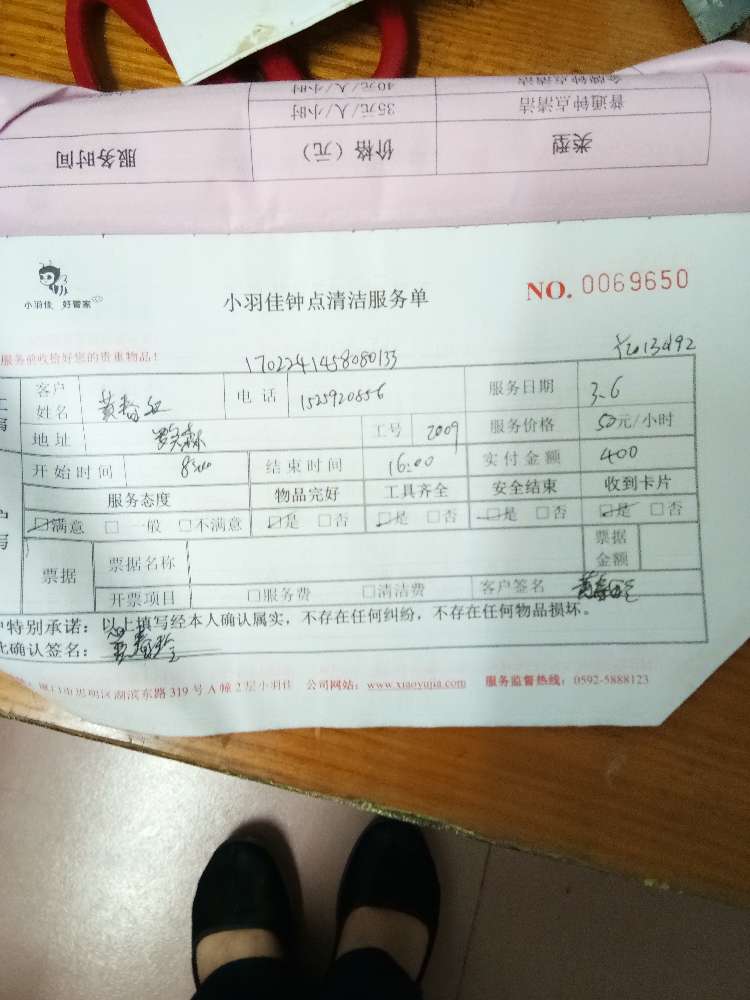 金牌钟点清洁 40元/人/小时
普通钟点清洁 35元/人/小时
类型 价格（元） 服务时间
小羽佳 好管家
小羽佳钟点清洁服务单
NO. 0069650
服务前收检好您的贵重物品！
1702241458080133
客户姓名 电话 1525920856 服务日期 3.6
地址 工号 2009 服务价格 50元/小时
开始时间 结束时间 16:00 实付金额 400
服务态度 物品完好 工具齐全 安全结束 收到卡片
☑满意 □一般 □不满意 ☑是 □否 ☑是 □否 ☑是 □否 ☑是 □否
票据 票据名称 票据金额
开票项目 □服务费 □清洁费 客户签名
特别承诺：以上填写经本人确认属实，不存在任何纠纷，不存在任何物品损坏。
此确认签名：
湖滨东路 319 号 A 幢 2 层小羽佳 公司网站：www.xiaoyujia.com 服务监督热线：0592-5888123